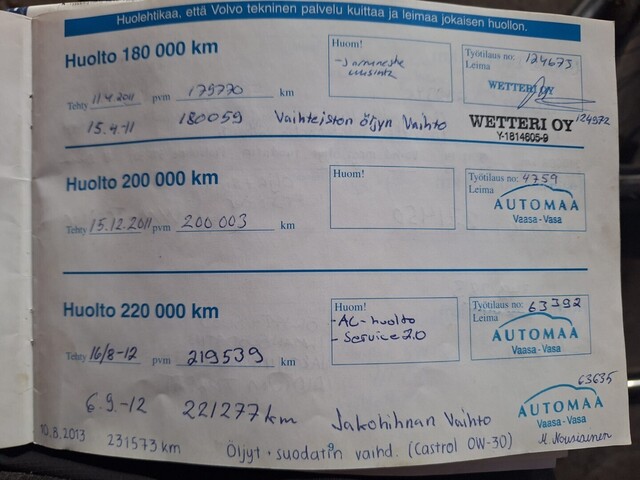 Huolehtikaa, että Volvo tekninen palvelu kuittaa ja leimaa jokaisen huollon.
Huolto 180 000 km
Huom!
- Jarruneste
uusinta
Työtilaus no: 124673
Leima
WETTERI OY
Tehty 11.4.2011 pvm 179770 km
15.4-11 180059 Vaihteiston öljyn Vaihto
WETTERI OY 124972
Y-1814605-9
Huolto 200 000 km
Huom!
Työtilaus no: 4759
Leima
AUTOMAA
Vaasa-Vasa
Tehty 15.12.2011 pvm 200 003 km
Huolto 220 000 km
Huom!
- AC-huolto
- Service 2.0
Työtilaus no: 63392
Leima
AUTOMAA
Vaasa-Vasa
Tehty 16/8-12 pvm 219539 km
6.9.-12 221277 km Jakohihnan Vaihto
63635
AUTOMAA
Vaasa-Vasa
10.8.2013 231573 km Öljyt + suodatin vaihd. (Castrol 0W-30) M. Nousiainen